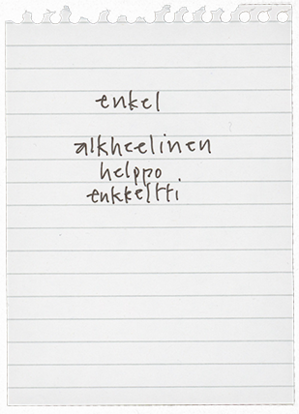 enkel
alkheelinen
helppo
enkkeltti